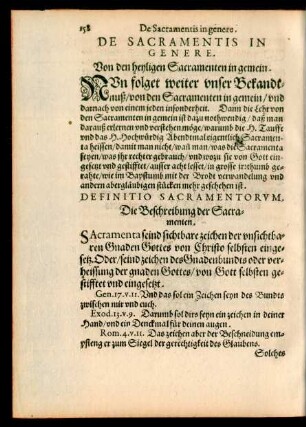 158 De Sacramentis in genere.
DE SACRAMENTIS IN
GENERE.
Von den heyligen Sacramenten in gemein.
NUn folget weiter vnser Bekandt-
nuß/ von den Sacramenten in gemein / vnd
darnach von einem jeden insonderheit. Dann die Lehr von
den Sacramenten in gemein ist dazu nothwendig / daß man
darauß erlernen vnd verstehen möge/ warumb die H. Tauffe
vnd das H. Hochwürdig Abendmal eigentlich Sacramen-
ta heissen/ damit man nicht/ wañ man/ was die Sacramenta
seyen/ was jhr rechter gebrauch/ vnd wozu sie von Gott ein-
gesetzt vnd gestifftet/ ausser acht lesset/ in grosse irrthumb ge-
rahte/ wie im Bapstumb mit der Brodt verwandelung vnd
andern abergläubigen stücken mehr geschehen ist.
DEFINITIO SACRAMENTORVM.
Die Beschreibung der Sacra-
menten.
SAcramenta seind sichtbare zeichen der vnsichtba-
ren Gnaden Gottes von Christo selbsten einge-
setzt. Oder/ seind zeichen des Gnadenbundts oder ver-
heissung der gnaden Gottes/ von Gott selbsten ge-
stifftet vnd eingesetzt.
Gen. 17. v. 11. Vnd das sol ein Zeichen seyn des Bundts
zwischen mir vnd euch.
Exod. 13. v. 9. Darumb sol dirs seyn ein zeichen in deiner
Hand/ vnd ein Denckmal für deinen augen.
Rom. 4. v. 11. Das zeichen aber der Beschneidung em-
pfieng er zum Siegel der gerechtigkeit des Glaubens.
Solches